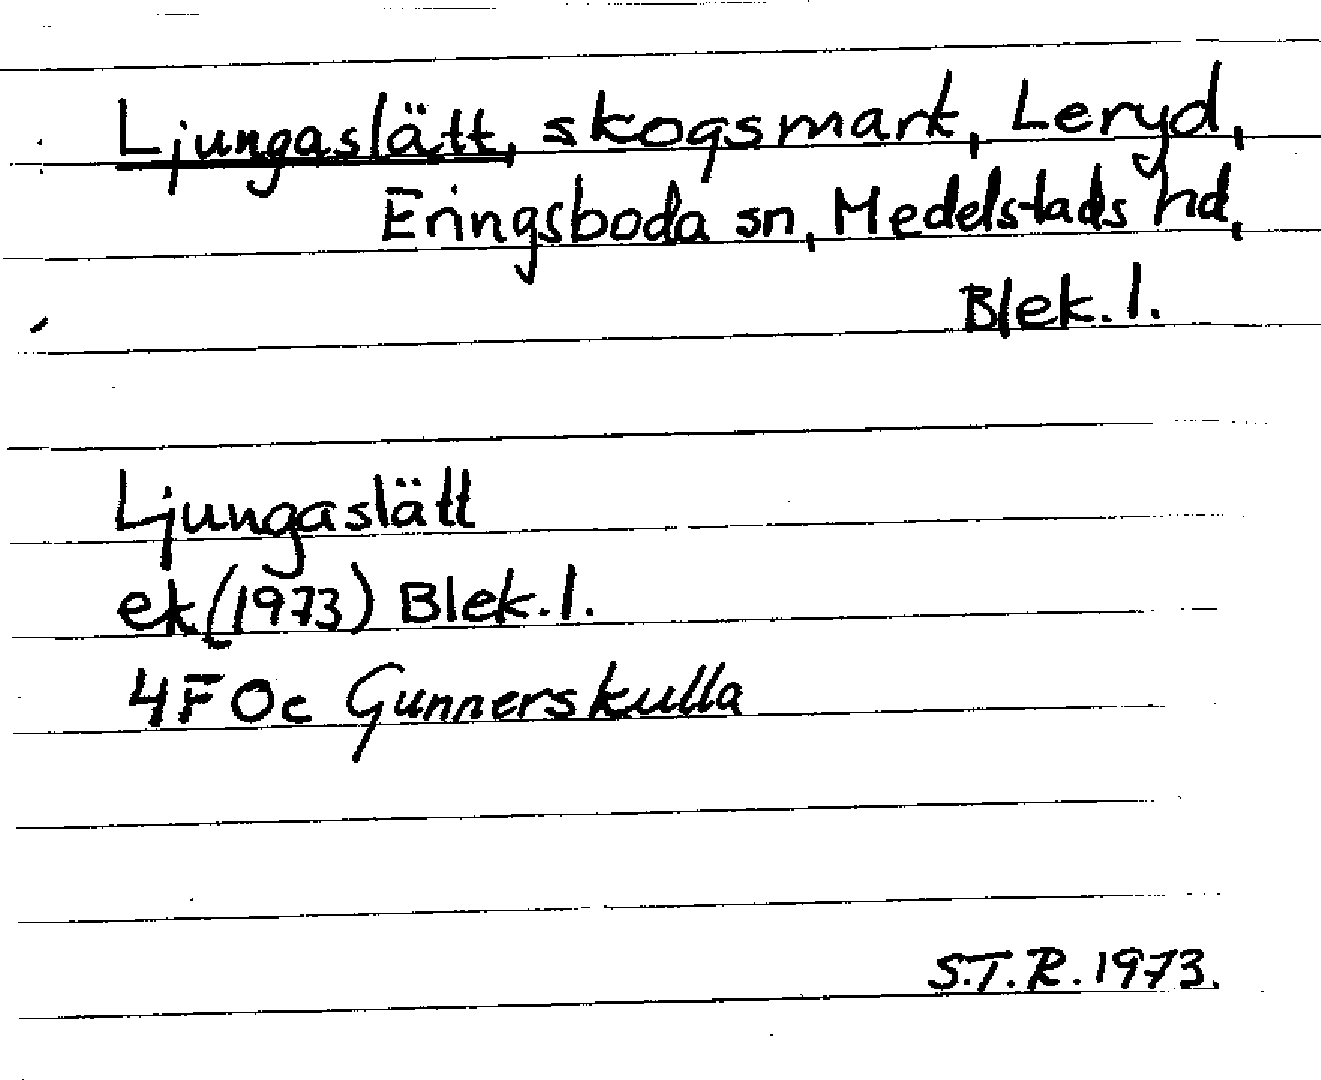 Ljungaslätt, skogsmark, Leryd,
Eringsboda sn, Medelstads hd,
Blek. l.
Ljungaslätt
ek (1973) Blek. l.
4F0c Gunnerskulla
S.T.R. 1973.